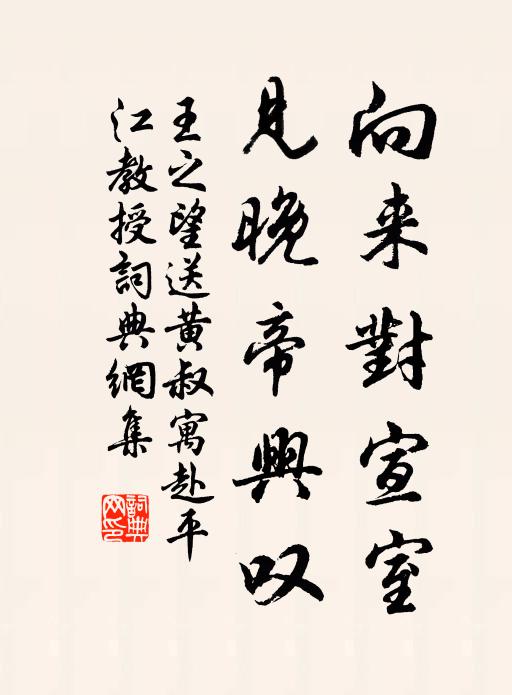 向来對宣室
見晚帝興叹
王之望送黄叔寓赴平
江教授詞典網集
詞典網印